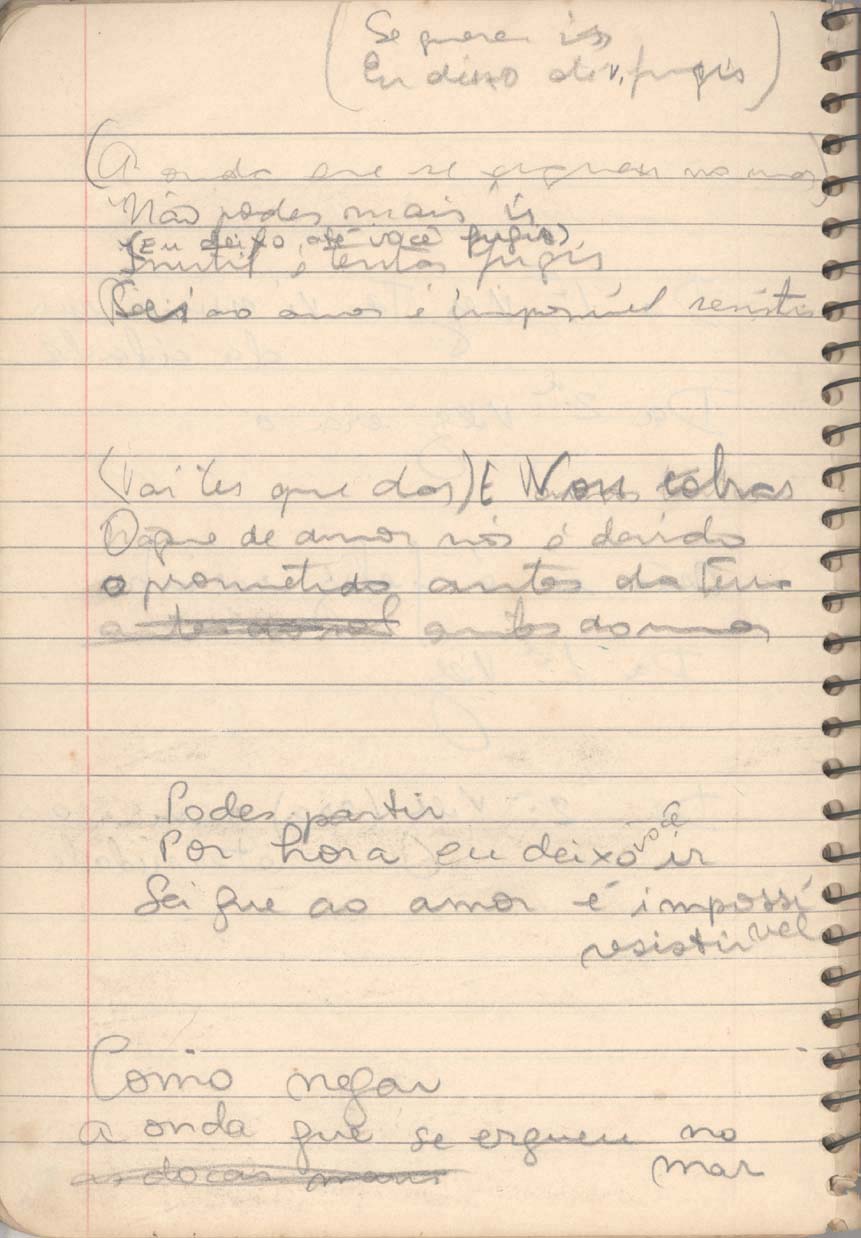 (Se queres ir
Eu deixo até v. fugir)
(A onda que se ergueu no mar)
Não podes mais ir
(Eu deixo até você fugir)
Inutil é tentar fugir
ao amor é impossível resistir
que dar) E Vou cobrar
O que de amor nos é devido
o prometido antes da terra
antes do mar
Podes partir
Por hora eu deixo você ir
Sei que ao amor é impossí
vel
resistir
Como negar
a onda que se ergueu no
mar
as docas mares